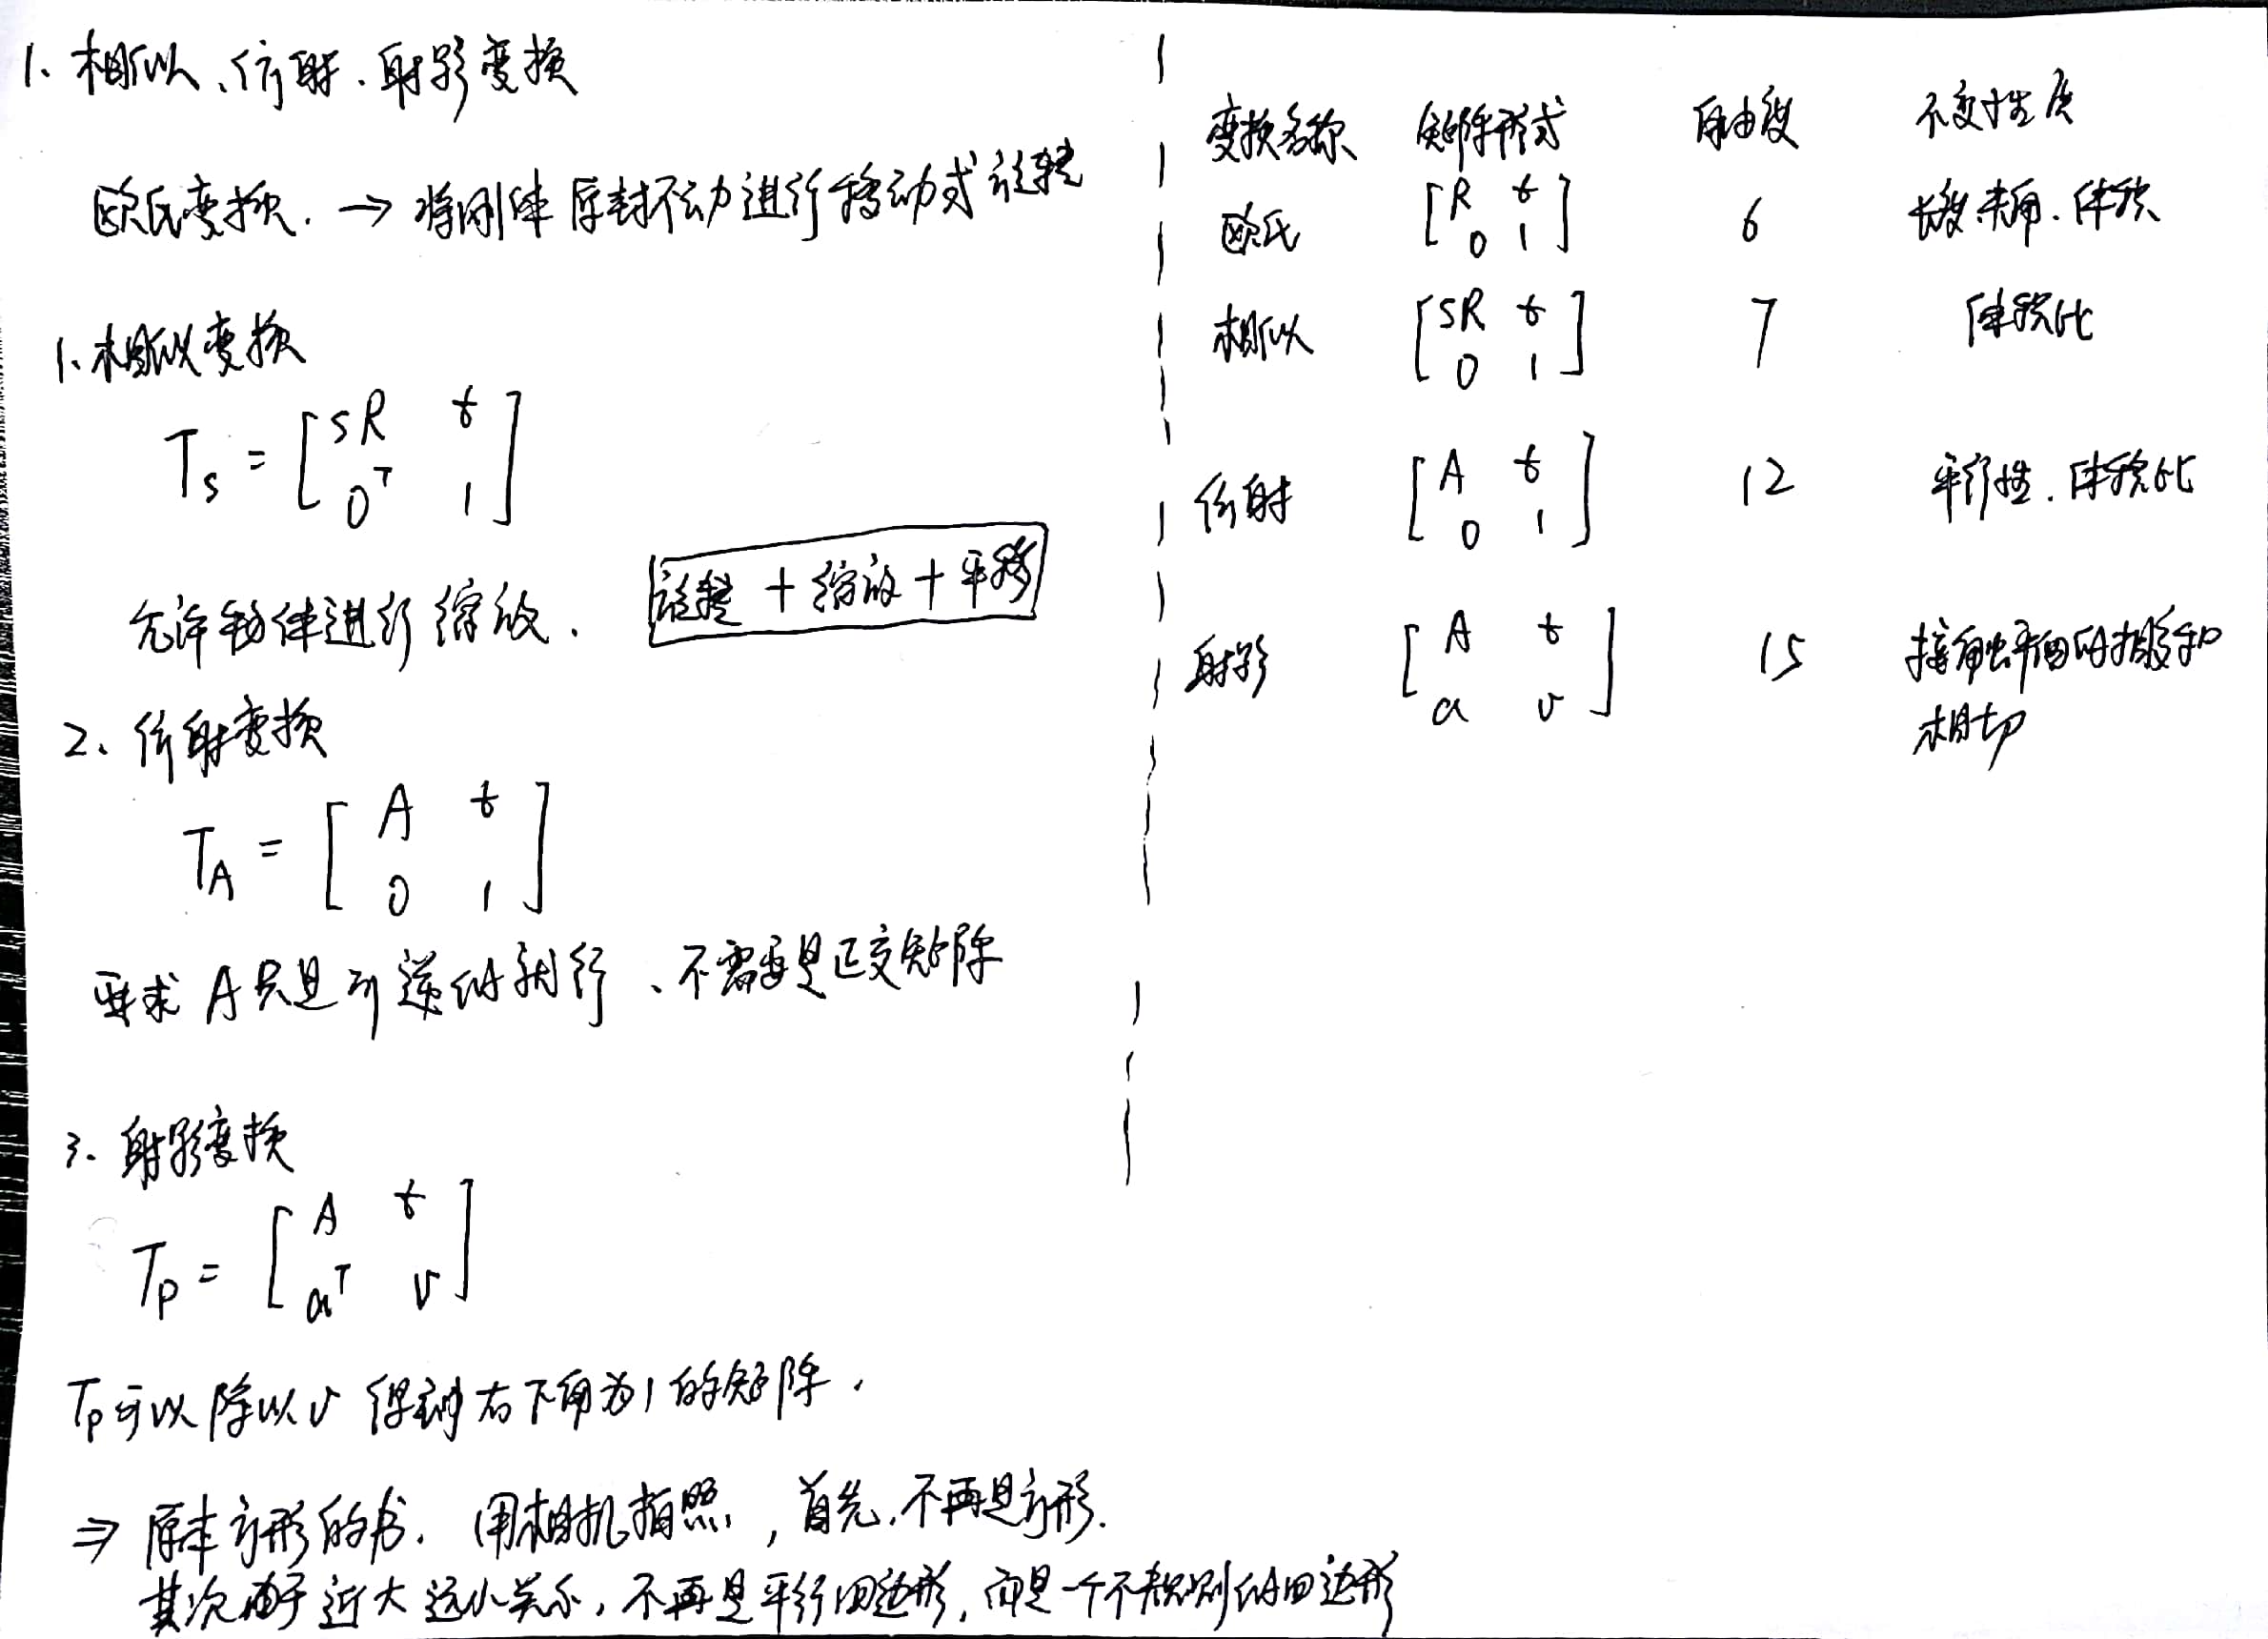 1、相似、仿射、射影变换
欧氏变换. → 将刚体原封不动进行移动或旋转
1、相似变换
T_s = [ sR t
0^T 1 ]
允许物体进行缩放.
旋转 + 缩放 + 平移
2、仿射变换
T_A = [ A t
0 1 ]
要求 A只是可逆的就行、不需要是正交矩阵
3、射影变换
T_p = [ A t
a^T v ]
T_p可以除以v 得到右下角为1的矩阵.
⇒ 原本方形的书. 用相机拍照, 首先, 不再是方形.
其次由于近大远小关系, 不再是平行四边形, 而是一个不规则的四边形
变换名称 矩阵形式 自由度 不变性质
欧氏 [ R t
0 1 ] 6 长度、夹角、体积
相似 [ sR t
0 1 ] 7 体积比
仿射 [ A t
0 1 ] 12 平行性. 体积比
射影 [ A t
a v ] 15 接触平面的相交和
相切